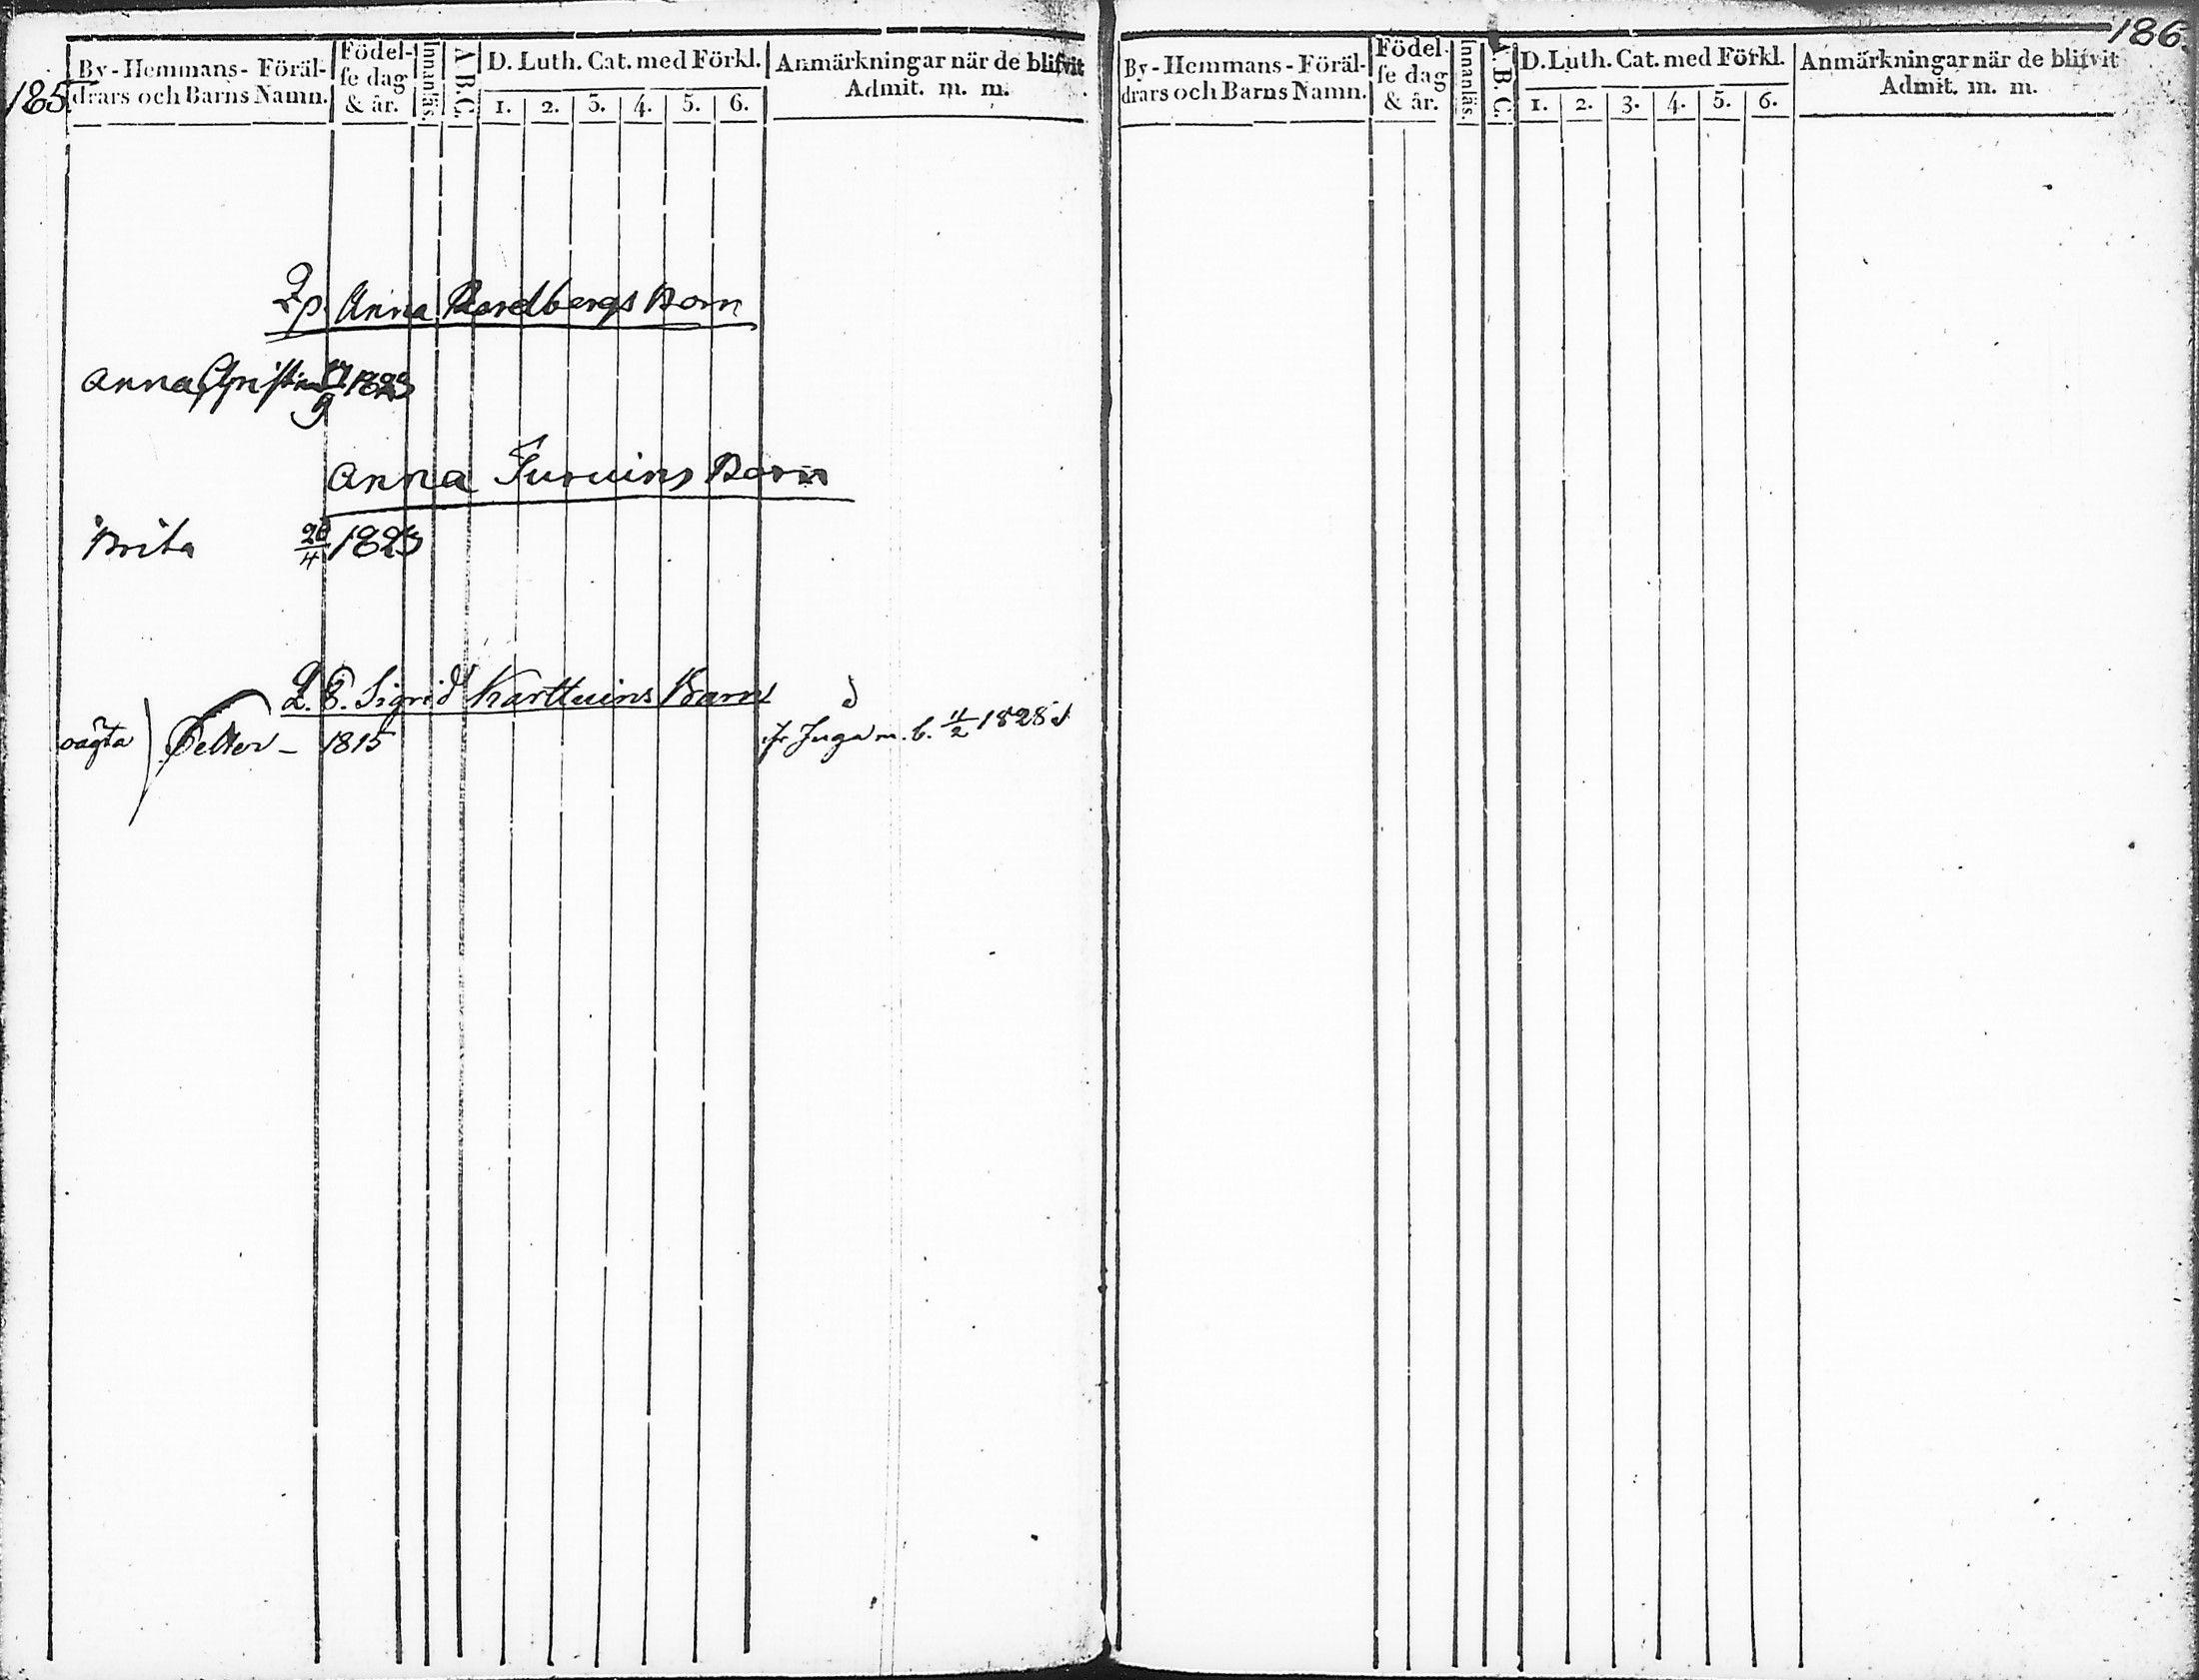 185.
By-Hemmans-Föräl-
drars och Barns Namn.
Födel-
se dag
& år.
Innanläs.
A B C.
D. Luth. Cat. med Förkl.
1. 2. 3. 4. 5. 6.
Anmärkningar när de blifvit
Admit. m. m.
Anna Barn
Anna Christina 1823
Anna Barn
Brita 1823
Sigrid Karttuins Barn
oägta Petter – 1815
Juga m. b. 11/2 1828
186.
By-Hemmans-Föräl-
drars och Barns Namn.
Födel-
se dag
& år.
Innanläs.
A. B. C.
D. Luth. Cat. med Förkl.
1. 2. 3. 4. 5. 6.
Anmärkningar när de blifvit
Admit. m. m.